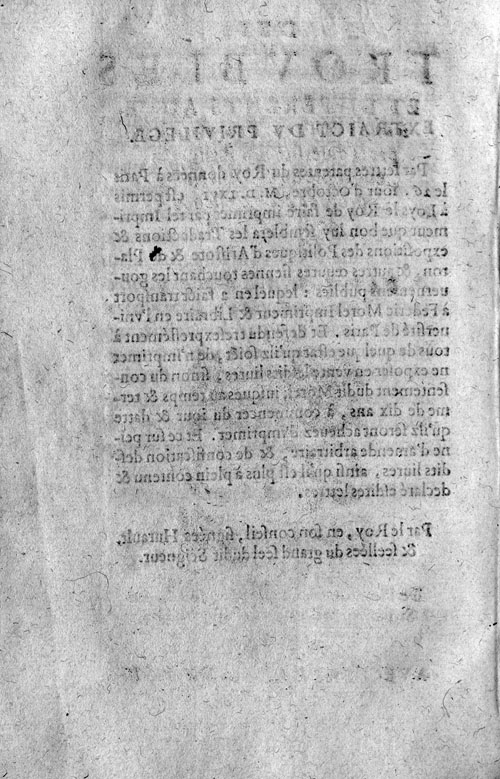 TROVBLES
EXTRAICT DV PRIVILEGE.
Par lettres patentes du Roy données à Paris
le 16. iour d'Octobre, M. D. est permis
à Loys le Roy de faire imprimer par tel Impri-
ment que bon luy semblera les Traductions &
expositions des Politiques d'Aristote & de Pla-
ton, & autres œuures siennes touchant les gou-
uernemens publics : lequel en a faict transport
à Federic Morel imprimeur & Libraire en l'vni-
uersité de Paris. Et defendu tresexpressément à
tous de quelque estat qu'ilz soiēt, de n'imprimer
ne exposer en vente lesdits liures, sinon du con-
sentement dudit Morel, iusques au temps & ter-
me de dix ans, à commencer du iour & datte
qu'ilz seront acheuez d'imprimer. Et ce sur pei-
ne d'amende arbitraire, & de confiscation des-
dits liures, ainsi qu'il est plus à plein contenu &
declaré esdites lettres.
Par le Roy, en son conseil, signées Hurault,
& seellées du grand seel dudit Seigneur.